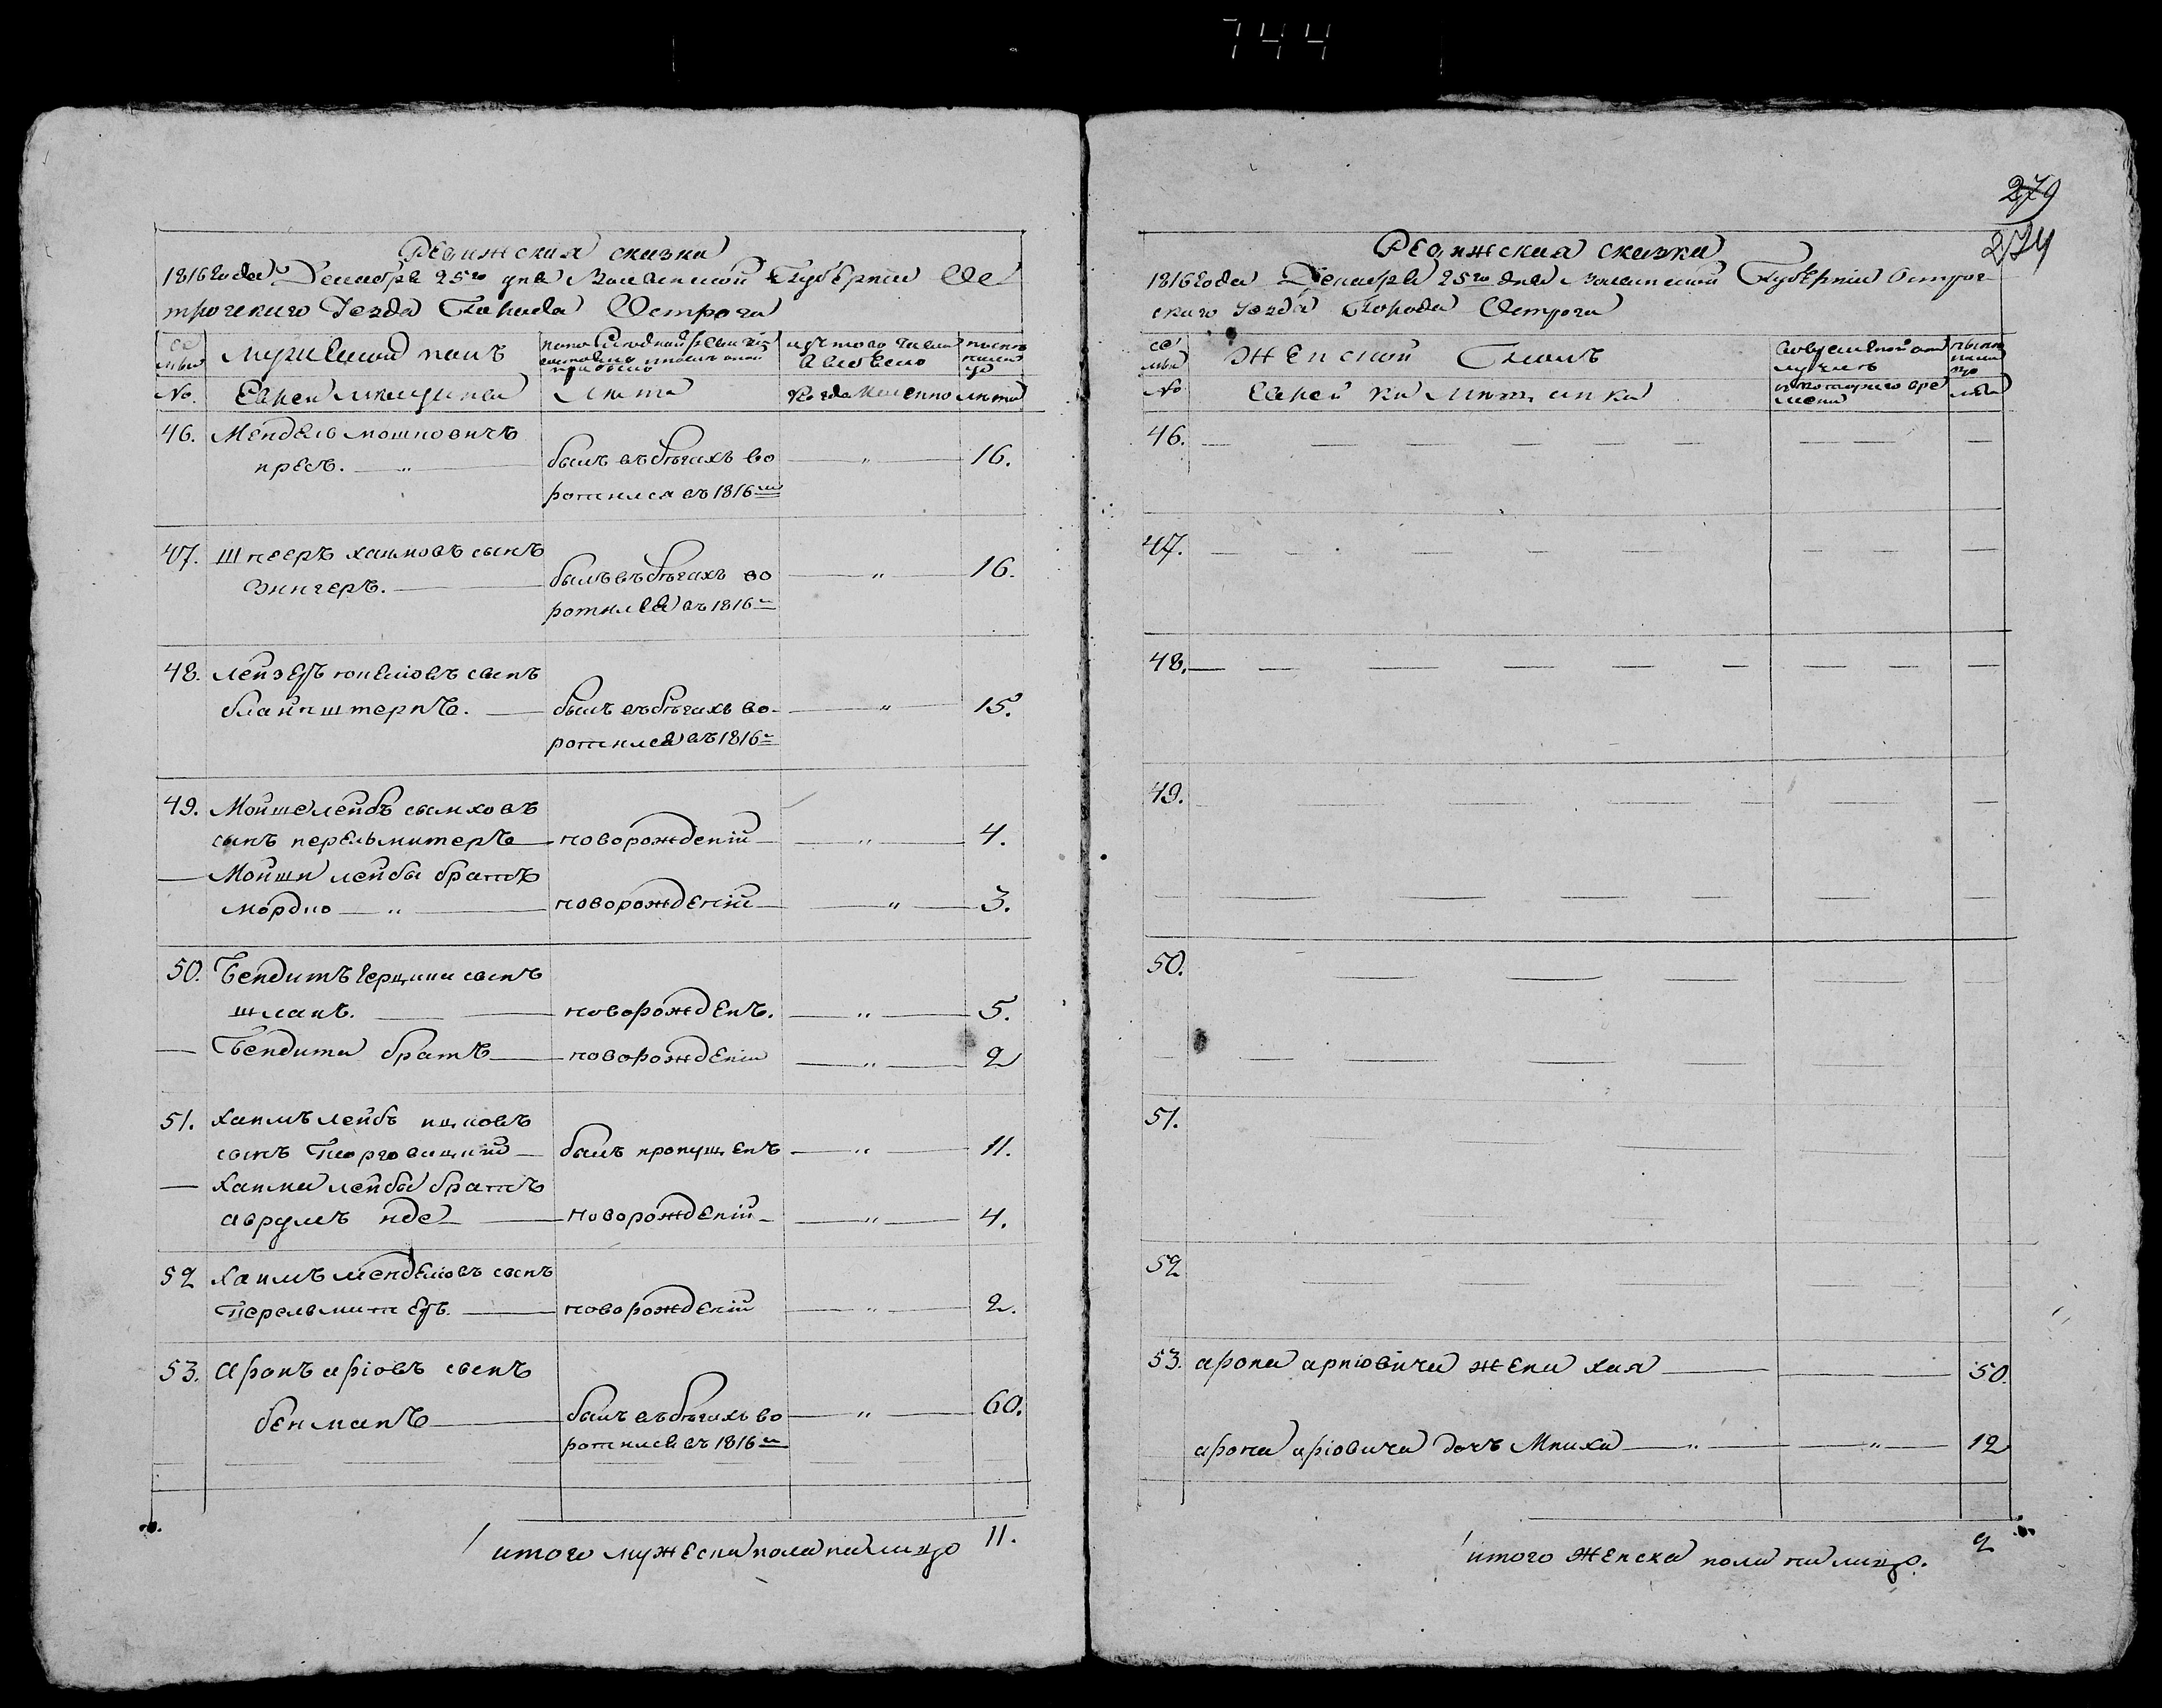 744
Ревижская сказка
1816 Года Декабря 25го дня Волынской Губернии Ос
трожского Уезда Города Острога
се
мьи
мужеской полъ
изъ того числа
выбыло
ныне
на ли
цо
№.
Евреи мещане
Лета
Когда именно
лета
46. Мендель мошковичъ
пресъ. — былъ въ бѣгахъ во — " — 16.
ротился въ 1816м
47. Шнееръ хаимовъ сынъ
Зингеръ. — былъ въ бѣгахъ во — " — 16.
ротился въ 1816м
48. лейзеръ сынъ
блайнштернъ. — былъ въ бѣгахъ во — " — 15.
ротился въ 1816м
49. Мойшелейбъ сымховъ
сынъ перельмитеръ — новорожденій — " — 4.
— Мойши лейбы братъ
мордко — " — новорожденій — " — 3.
50. Бендитъ Герщики сынъ
шланъ. — новорожденъ. — " — 5.
— Бендита братъ — новорожденій — " — 2
51. хаимъ лейбъ ицковъ
сынъ Торговицкий — былъ пропущенъ — " — 11.
— хаима лейбы братъ
аврумъ иде — новорожденій — " — 4.
52 хаимъ менделіовъ сынъ
Перельмитеръ. — новорожденій — " — 2.
53. Аронъ аріовъ сынъ
бенманъ — былъ въ бѣгахъ во — " — 60.
ротился въ 1816м
итого мужеска пола на лицо 11.
279
274
Ревижская сказка
1816 Года Декабря 25го дня Волынской Губернии Острог
скаго Уезда Города Острога
се
мьи
Женской Полъ
№
Еврей ки Мещанки
с котораго вре
мени
лета
46.
47.
48.
49.
50.
51.
52
53. арона аріовича жена хая — 50.
арона аріовича дочъ Мниха — " — " — 12
итого Женска пола на лицо. 2